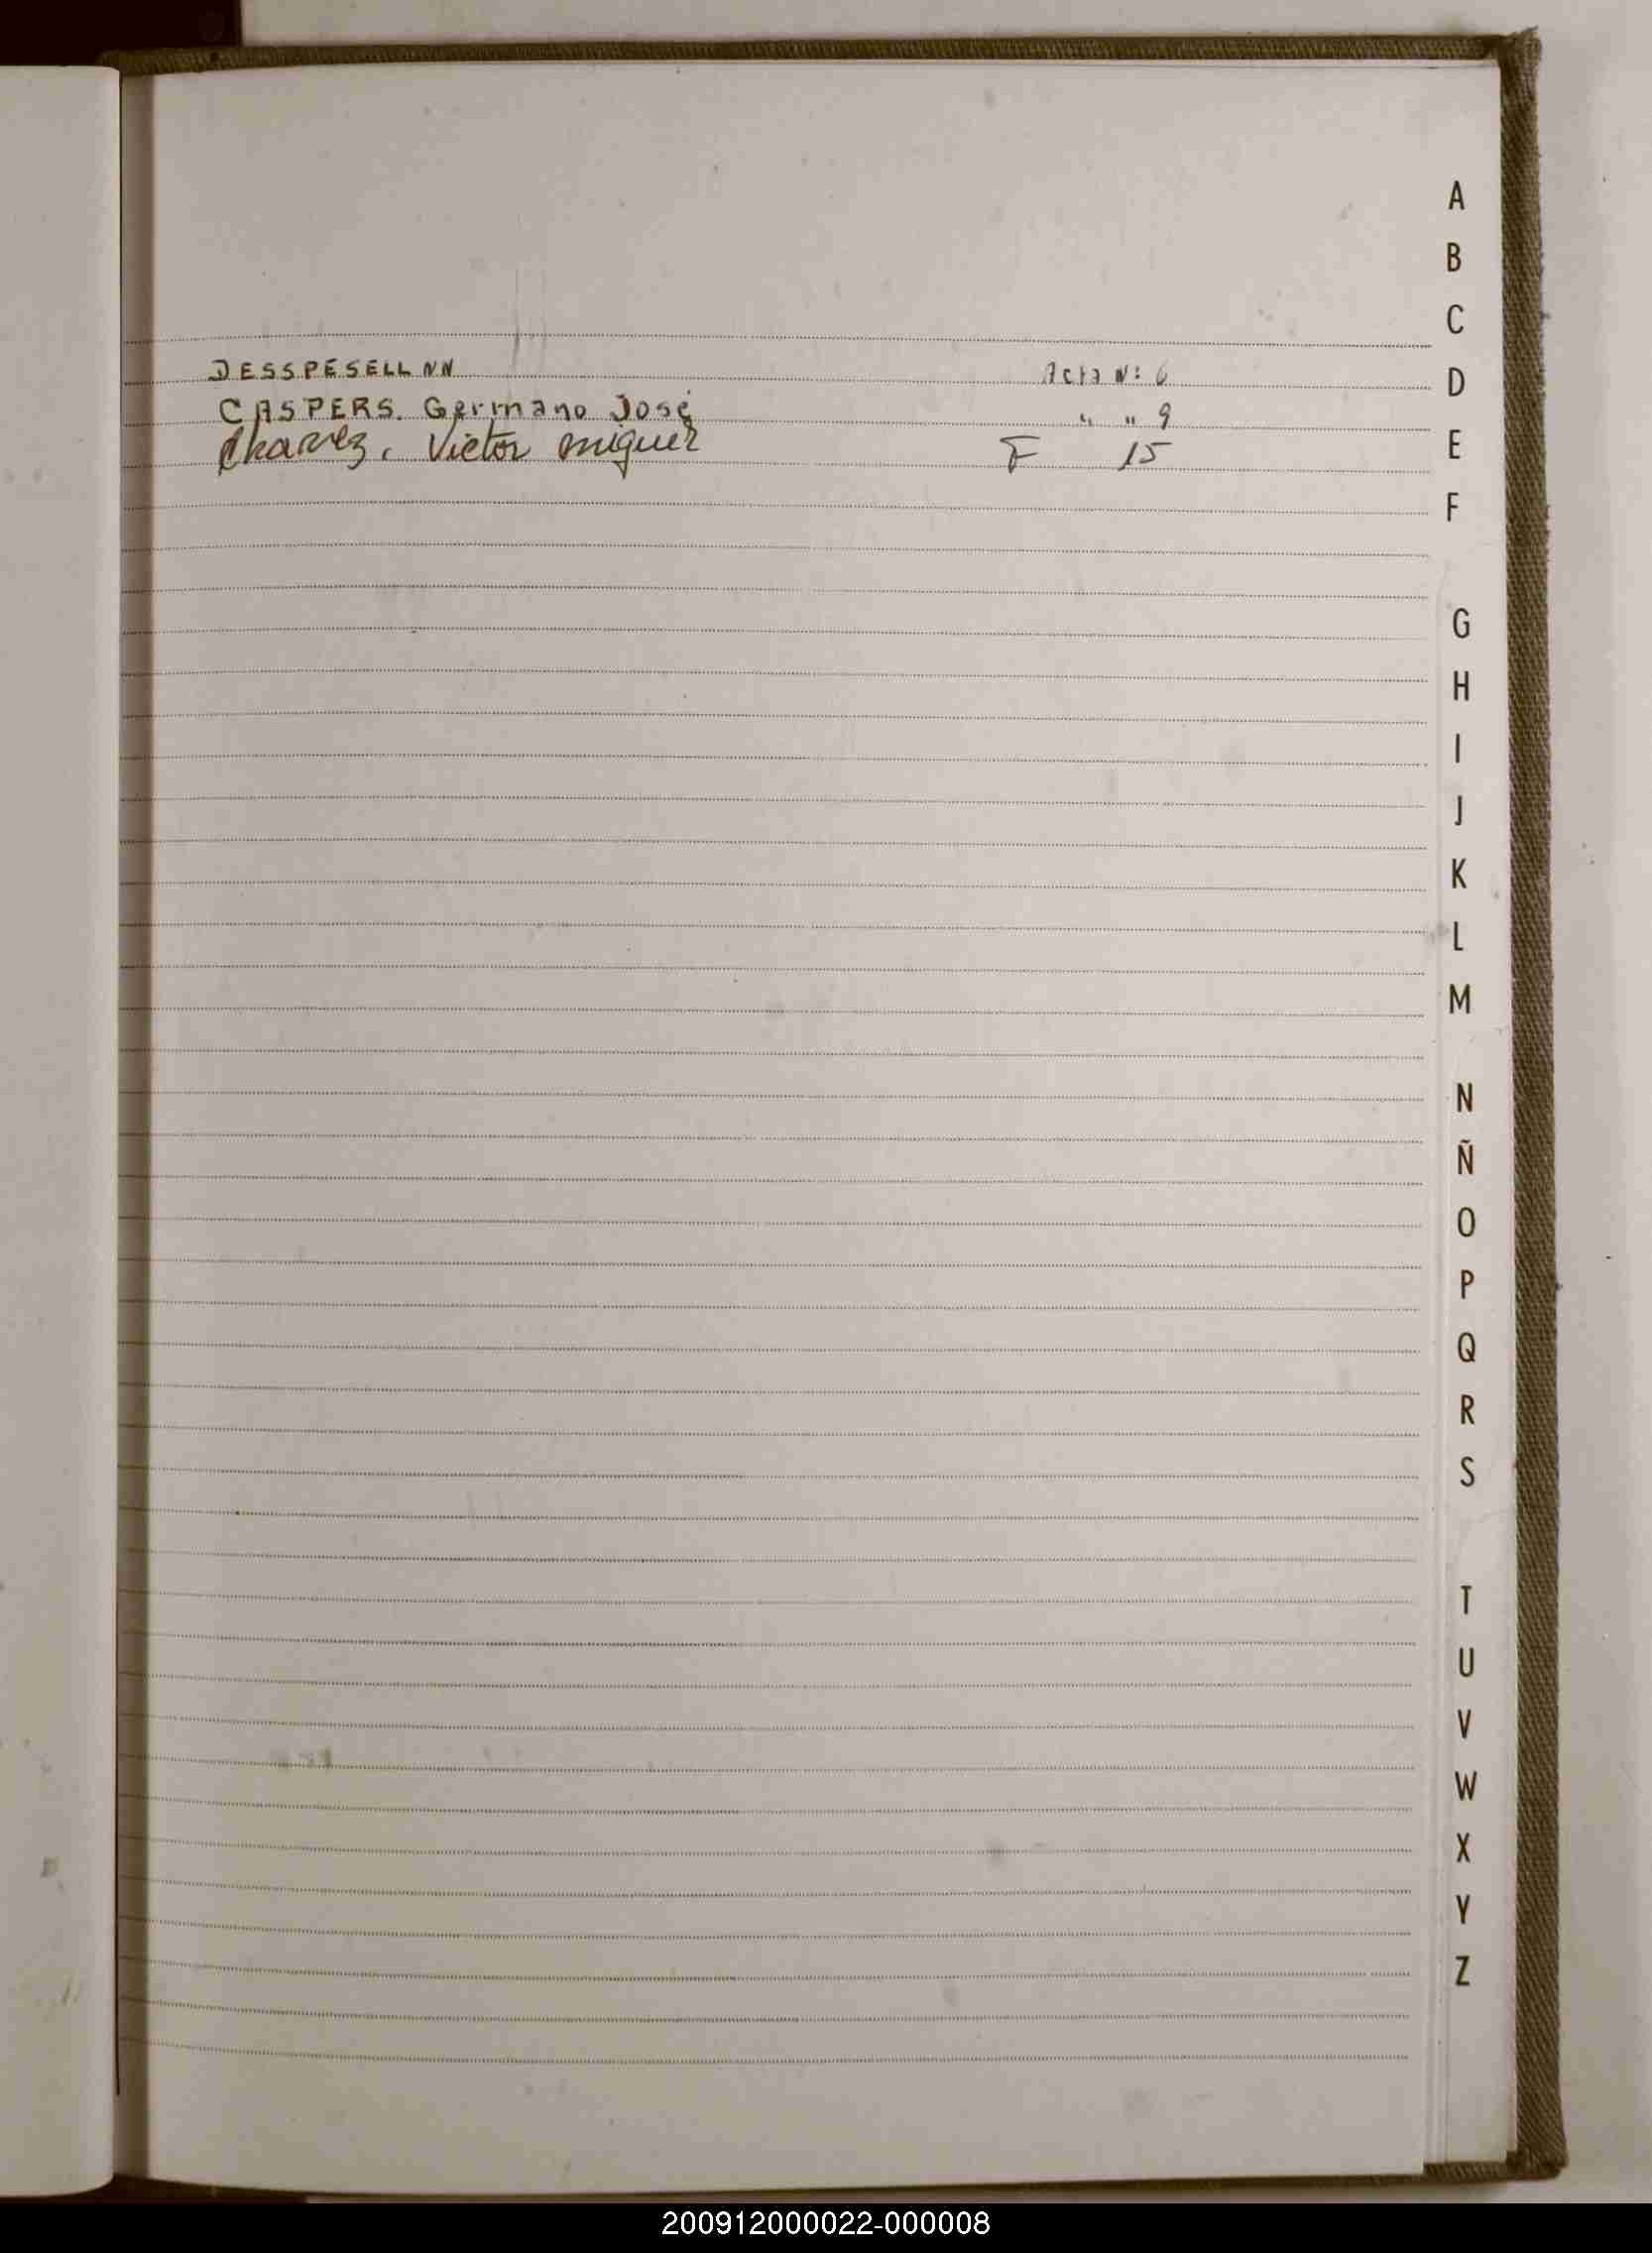 DESSPESELL NN Acta N: 6
CASPERS. Germano José " " 9
Chavez, Victor Miguel F 15
A
B
C
D
E
F
G
H
I
J
K
L
M
N
Ñ
O
P
Q
R
S
T
U
V
W
X
Y
Z
200912000022-000008